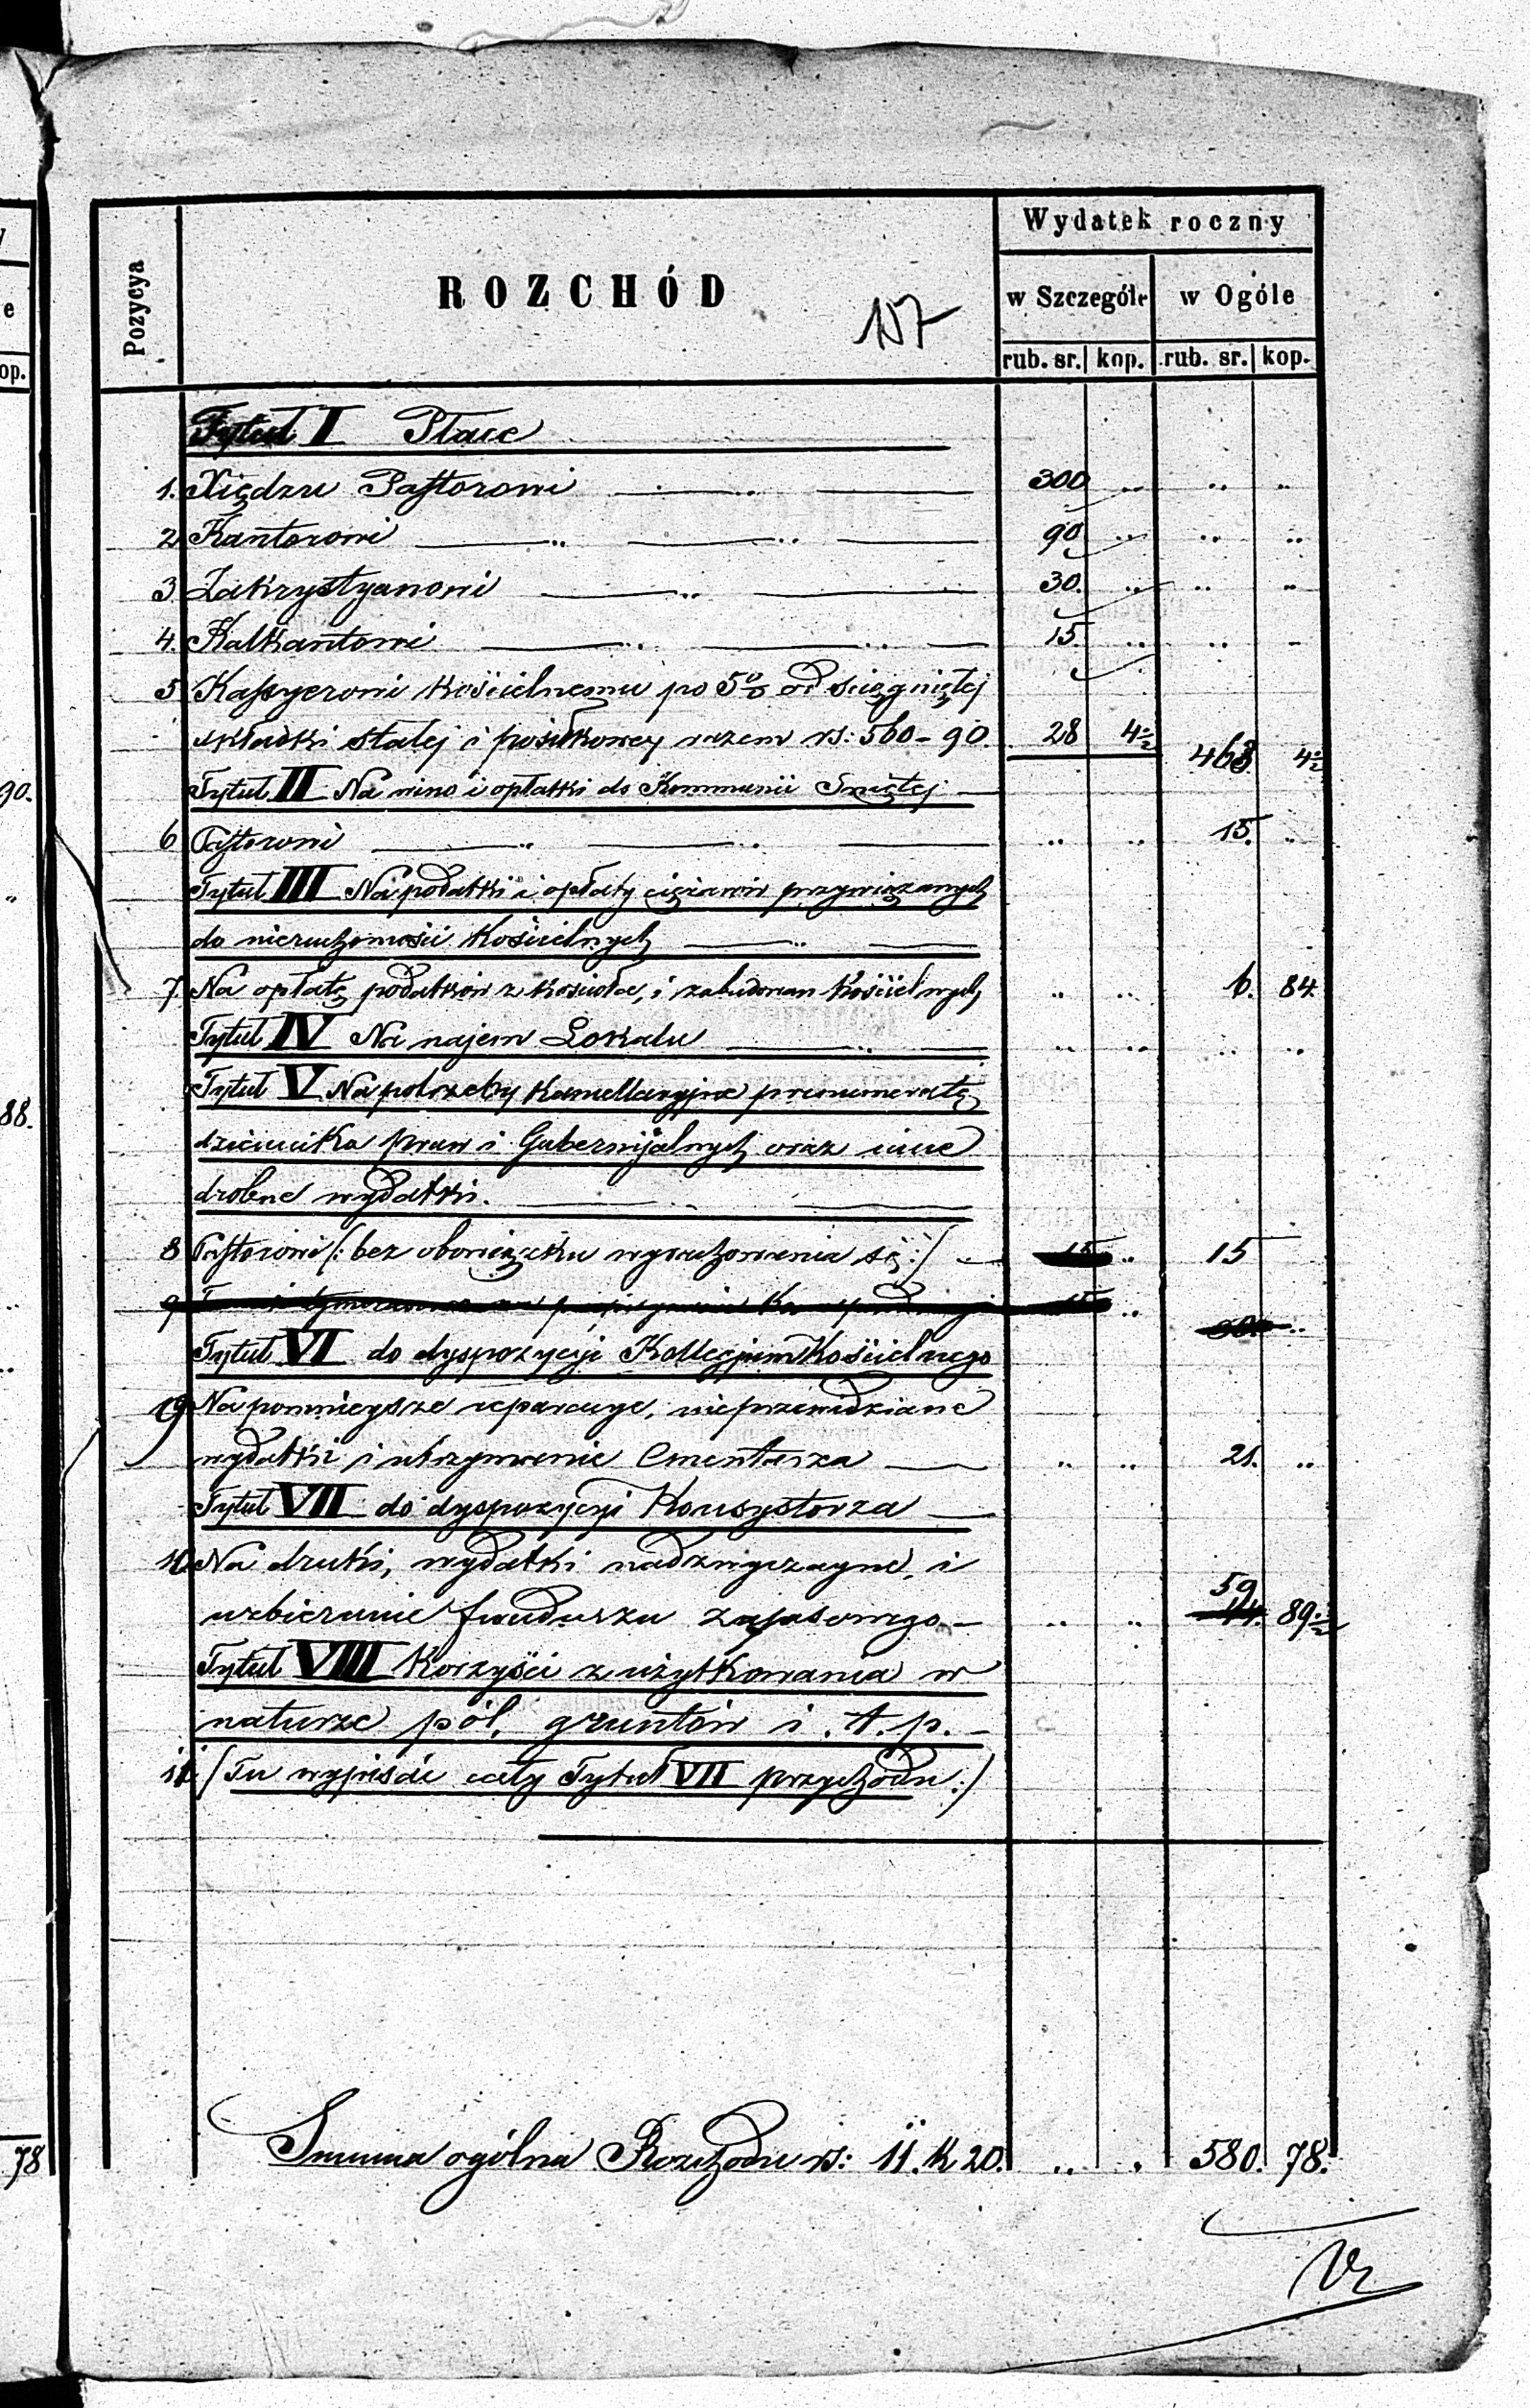 Wydatek roczny
Pozycya
ROZCHÓD
w Szczególe w Ogóle
157
rub. sr. kop. rub. sr. kop.
Tytuł I Płace
1. Xiędzu Pastorowi 300 .. .. ..
2 Kantorowi 90 .. .. ..
3 Zakrystyanowi 30. .. .. ..
4. Kalkantowi 15. .. .. -
5 Kassyerowi kościelnemu po 5% od ściągniętej
składki stałej i posiłkowey razem rs: 560-90. 28 4½ 463. 4½
Tytuł II Na wino i opłatki do Kommunii Swiętej
6 Pastorowi .. .. 15. ..
Tytuł III Na podatki i opłaty ciężarów przywiązanych
do nieruchomości Kościelnych
7. Na opłatę podatków z kościoła, i zabudowan Kościelnych .. .. 6. 84.
Tytuł IV Na najem Lokalu .. .. .. ..
Tytuł V Na potrzeby Kancellaryjne prenumeratę
dziennika praw i Gubernijalnych oraz inne
drobne wydatki.
8 Pastorowi (: bez obowiązku wyrachowania się :) 15 .. 15
9 15 ..
30 ..
Tytuł VI do dyspozycyi Kollegium Kościelnego
9 Na pomnieysze reparacye, nieprzewidziane
wydatki i utrzymanie Cmentarza .. .. 21. ..
Tytuł VII do dyspozycyi Konsystorza
10 Na druki, wydatki nadzwyczayne, i
59
uzbieranie funduszu zapasowego .. .. 44. 89½
Tytuł VIII Korzyści z użytkowania w
naturze pól, gruntów i. t. p.
11 (Tu wypisać cały Tytuł VII przychodu :)
Summa ogólna Rozchodu rs: 11. k 20. .. . 580. 78.
90.
88.
78